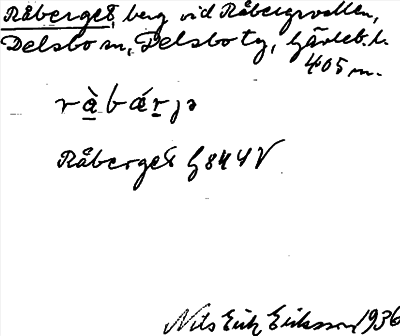 Råberget, berg vid Råbergsvallen,
Delsbo sn, Delsbo tg, Gävleb. l.
405 m.
r à b á r j ə
Råberget G844V
Nils Erik Eriksson 1936